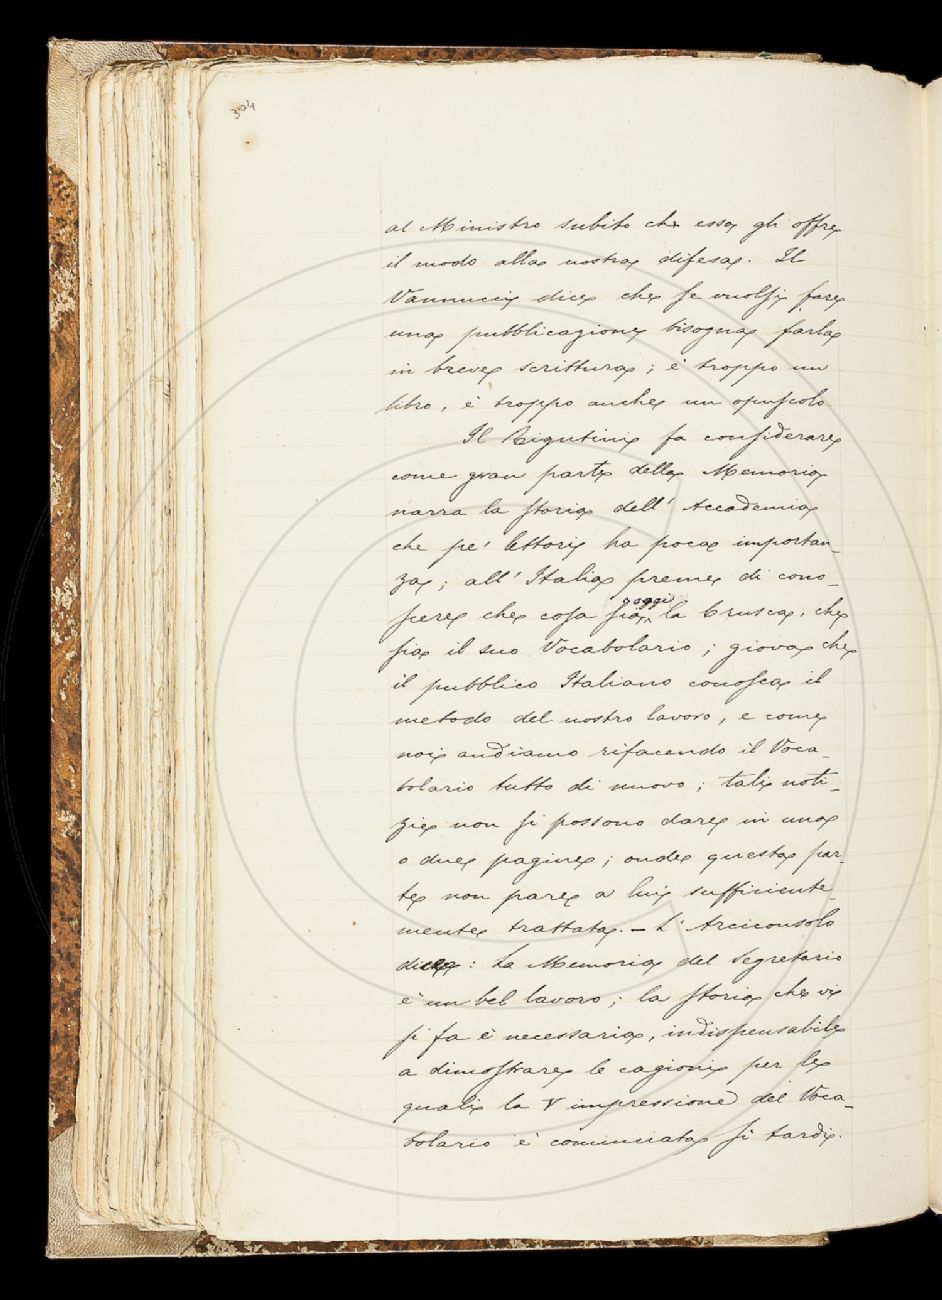 304
al Ministro subito che essa gli offre
il modo alla nostra difesa. Il
Vannucci dice che se vuolsi fare
una pubblicazione bisogna farla
in breve scrittura; è troppo un
libro, è troppo anche un opuscolo
Il Rigutini fa considerare
come gran parte della Memoria
narra la storia dell' Accademia
che pe' lettori ha poca importan-
za; all' Italia preme di cono-
scere che cosa sia oggi la Crusca, che
sia il suo Vocabolario; giova che
il pubblico Italiano conosca il
metodo del nostro lavoro, e come
noi andiamo rifacendo il Voca-
bolario tutto di nuovo; tali noti-
zie non si possono dare in una
o due pagine; onde questa par-
te non pare a lui sufficiente-
mente trattata. – L' Arciconsolo
dice: La Memoria del Segretario
è un bel lavoro; la storia che vi
si fa è necessaria, indispensabile
a dimostrare le cagioni per le
quali la V impressione del Voca-
bolario è cominciata sì tardi.